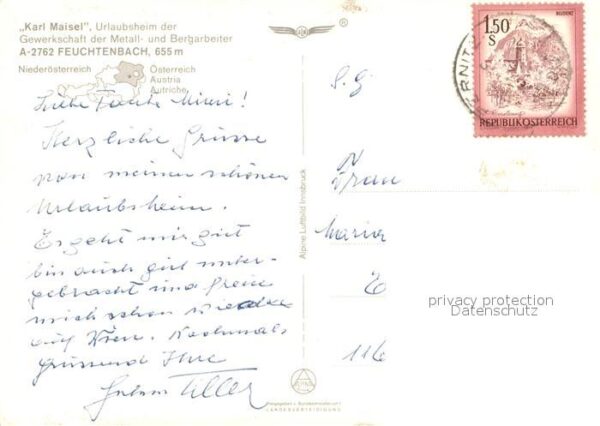 „Karl Maisel", Urlaubsheim der
Gewerkschaft der Metall- und Bergarbeiter
A-2762 FEUCHTENBACH, 655 m
Niederösterreich
Österreich
Austria
Autriche
Liebe
Herzliche Grüsse
von meinem schönen
Urlaubsheim.
Es geht mir gut
bin auch gut unter-
gebracht und freue
mich schon wieder
auf Wien. Nochmals
grüssend Ihre
Alpine Luftbild Innsbruck
ALPINE
LANDESVERTEIDIGUNG
®
1.50
S
BLUDENZ
REPUBLIK ÖSTERREICH
S. g.
Frau
Maria
116
privacy protection
Datenschutz